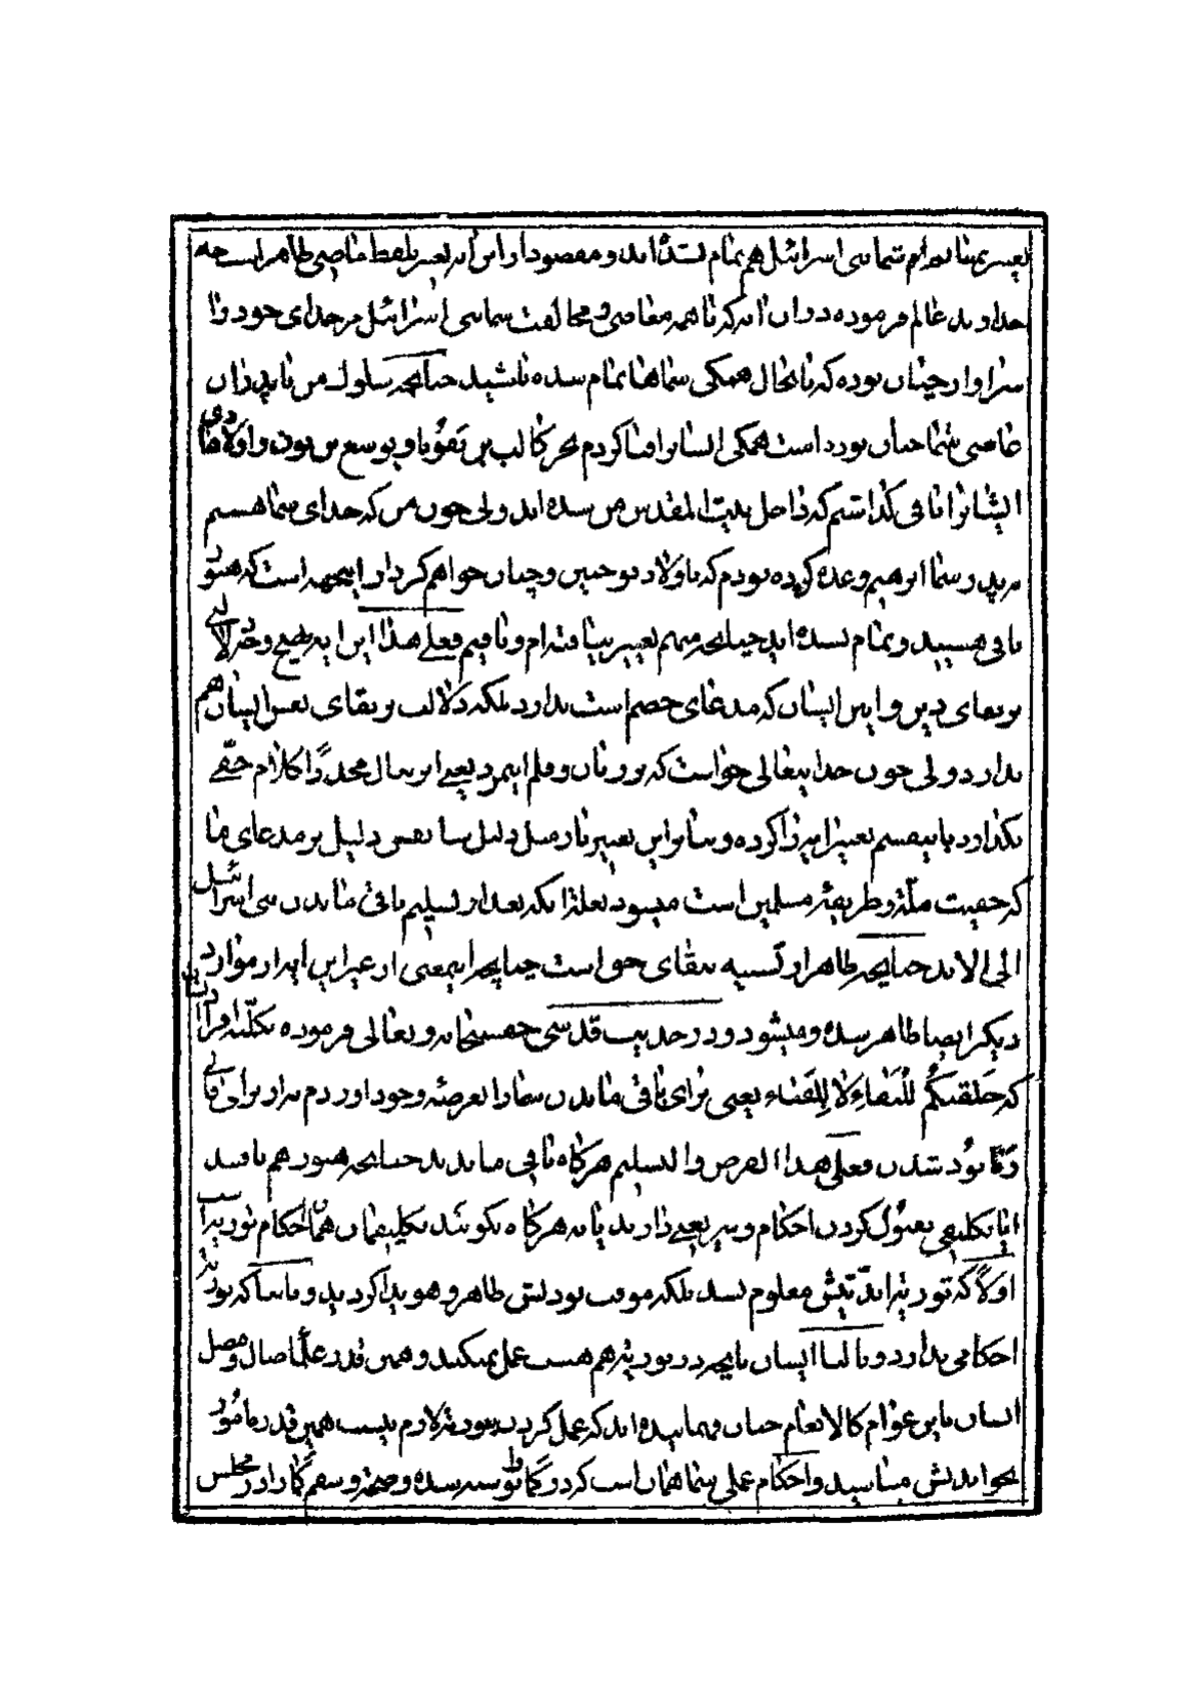 تغییر نیافته‌ام شما بنی اسرائیل هم تمام نشده‌اید و مقصود از این آیه بتعبیر بلفظ ماضی ظاهر است چه
خداوند عالم فرموده در آن آیه که با همه معاصی و مخالفت شما بنی اسرائیل مر خدای خود را
سزاوار چنان بوده که تا بحال همگی شماها تمام شده باشید چنانچه سلوک من با پدران
عاصی شما چنان بوده است همگی ایشان را فنا کردم بجز کالب بن یفونا و یوشع بن نون و اولاد
ایشان را باقی گذاشتم که داخل بیت المقدس من شده‌اند ولی چون من که خدای شما هستم
به پدر شما ابرهیم وعده کرده بودم که باولاد تو چنین و چنان خواهم کرد از اینجهه است که هنوز
باقی هستید و تمام نشده‌اید چنانچه منهم تغییر نیافته‌ام و نایفیم فعلی هذا این آیه بهیچ وجه دلالتی
بر بقای دین و آیین ایشان که مدعای خصم است ندارد بلکه دلالت بر بقای نفس ایشان هم
ندارد ولی چون خدایتعالی خواست که بر زبان و قلم این مرد یعنی ابو سال مجددا کلام حقی
بگذارد باینقسم تعبیر آیه را کرده و بنابر این تعبیر باز مثل دلیل سابقش دلیل بر مدعای ما
که حقیت ملت و طریقه مسلمین است میشود بعلت آنکه بعد از تسلیم باقی ماندن بنی اسرائیل
الی الابد چنانچه ظاهر از تشبیه ببقای خود است چنانچه اینمعنی از غیر این آیه از موارد
دیگر ایضا ظاهر شده و میشود و در حدیث قدسی حقسبحانه و تعالی فرموده
که خلقتکم للبقاء لا للفناء یعنی برای باقی ماندن شما را بعرصه وجود آوردم نه از برای فانی
و نابود شدن فعلی هذا الفرض و التسلیم هرگاه باقی ماندند چنانچه هنوز هم باقیند
آیا تکلیفی بقبول کردن احکام و شریعتی دارند یا نه هرگاه بگویند تکلیفمان همان احکام توریه است
اولا که توریه ابدیتش معلوم نشد بلکه موقت بودنش ظاهر و هویدا گردید و ثانیا که توریه
احکامی ندارد و ثالثا ایشان بآنچه در توریه هم هست عمل نمیکنند و همین قدر علمای ضال و مضل
ایشان باین عوام کالانعام چنان فهمانیده‌اند که عمل کردن بتوریه لازم نیست همین قدر مأمور
بخواندنش میباشید و احکام عملی شما همان است که در گماتو ثبت شده و صحه و سقم گمارا در مجلس